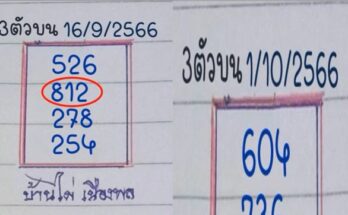 3ตัวบน 16/9/2566
526
812
278
254
บ้านไผ่ เมืองพล
3ตัวบน 1/10/2566
604